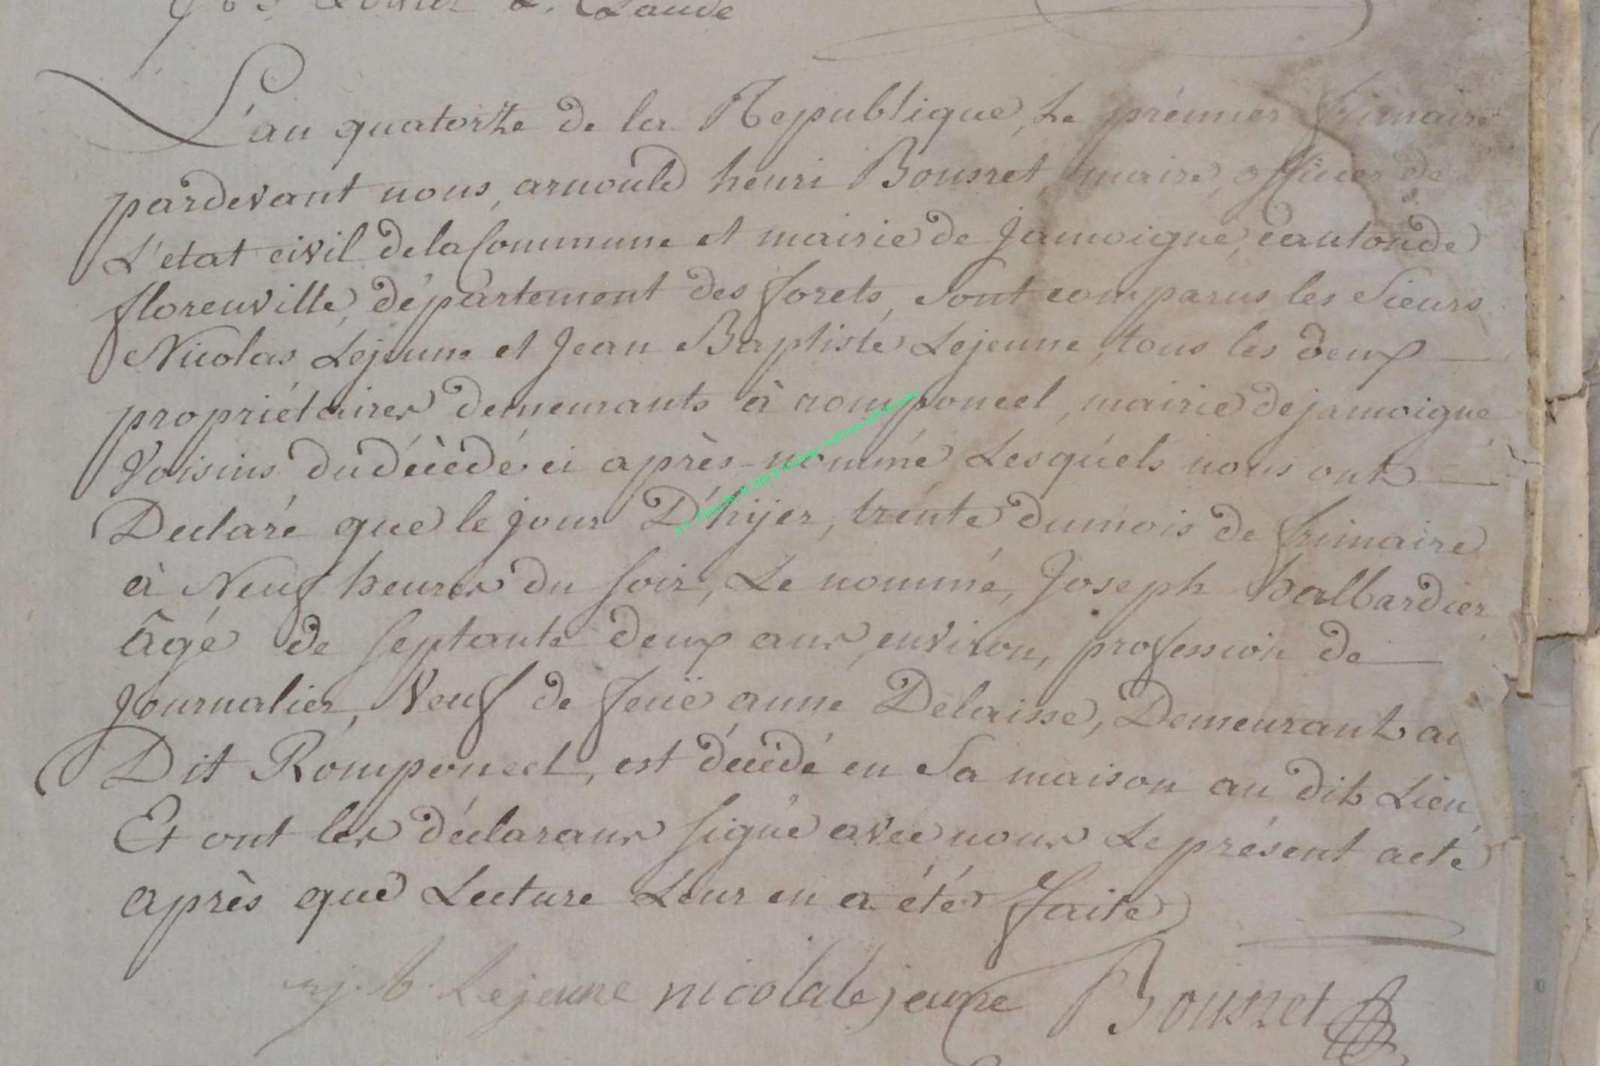 L'an quatorze de la Republique, Le prémier frimaire
pardevant nous, arnould henri Bousret, maire, officier de
L'état civil delaCommune et mairie de Jamoigne, cantonde
florenville, département des forets, sont comparus les Sieurs
Nicolas Lejeune et Jean Baptiste Lejeune, tous les deux
propriétaires demeurants à romponcel, mairie dejamoigne
Voisins dudécèdé ci après-nommé Lesquéls nous ont
Declaré que le jour D'hijer, trénte dumois de frimaire
à Neuf heures du soir, Le nommé, Joseph halbardier
âgé de septante deux ans environ, profession de
journalier, Veuf de feuë anne Delaisse, Demeurant au
Dit Rómponcel, est décédé en Sa maison au dit Lieu
Et ont les déclarans signé avec nous Le présent acte
après que Lecture Leur en a été faite
j. b. Lejeune nicola lejeune Bousret